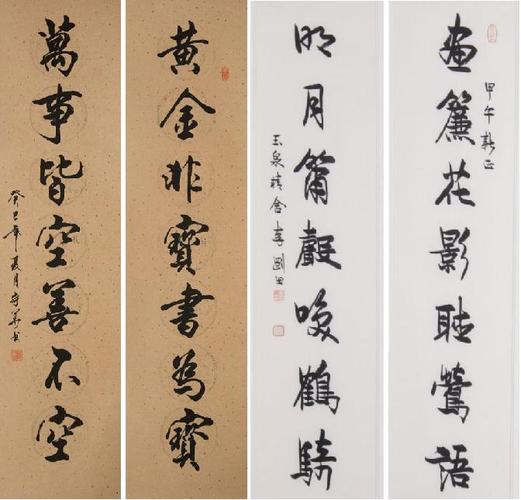 畫簾花影聽鶯語
甲午新正
明月簫聲喚鶴騎
玉泉精舍李剛田
黃金非寶書為寶
萬事皆空善不空
癸巳年夏月守